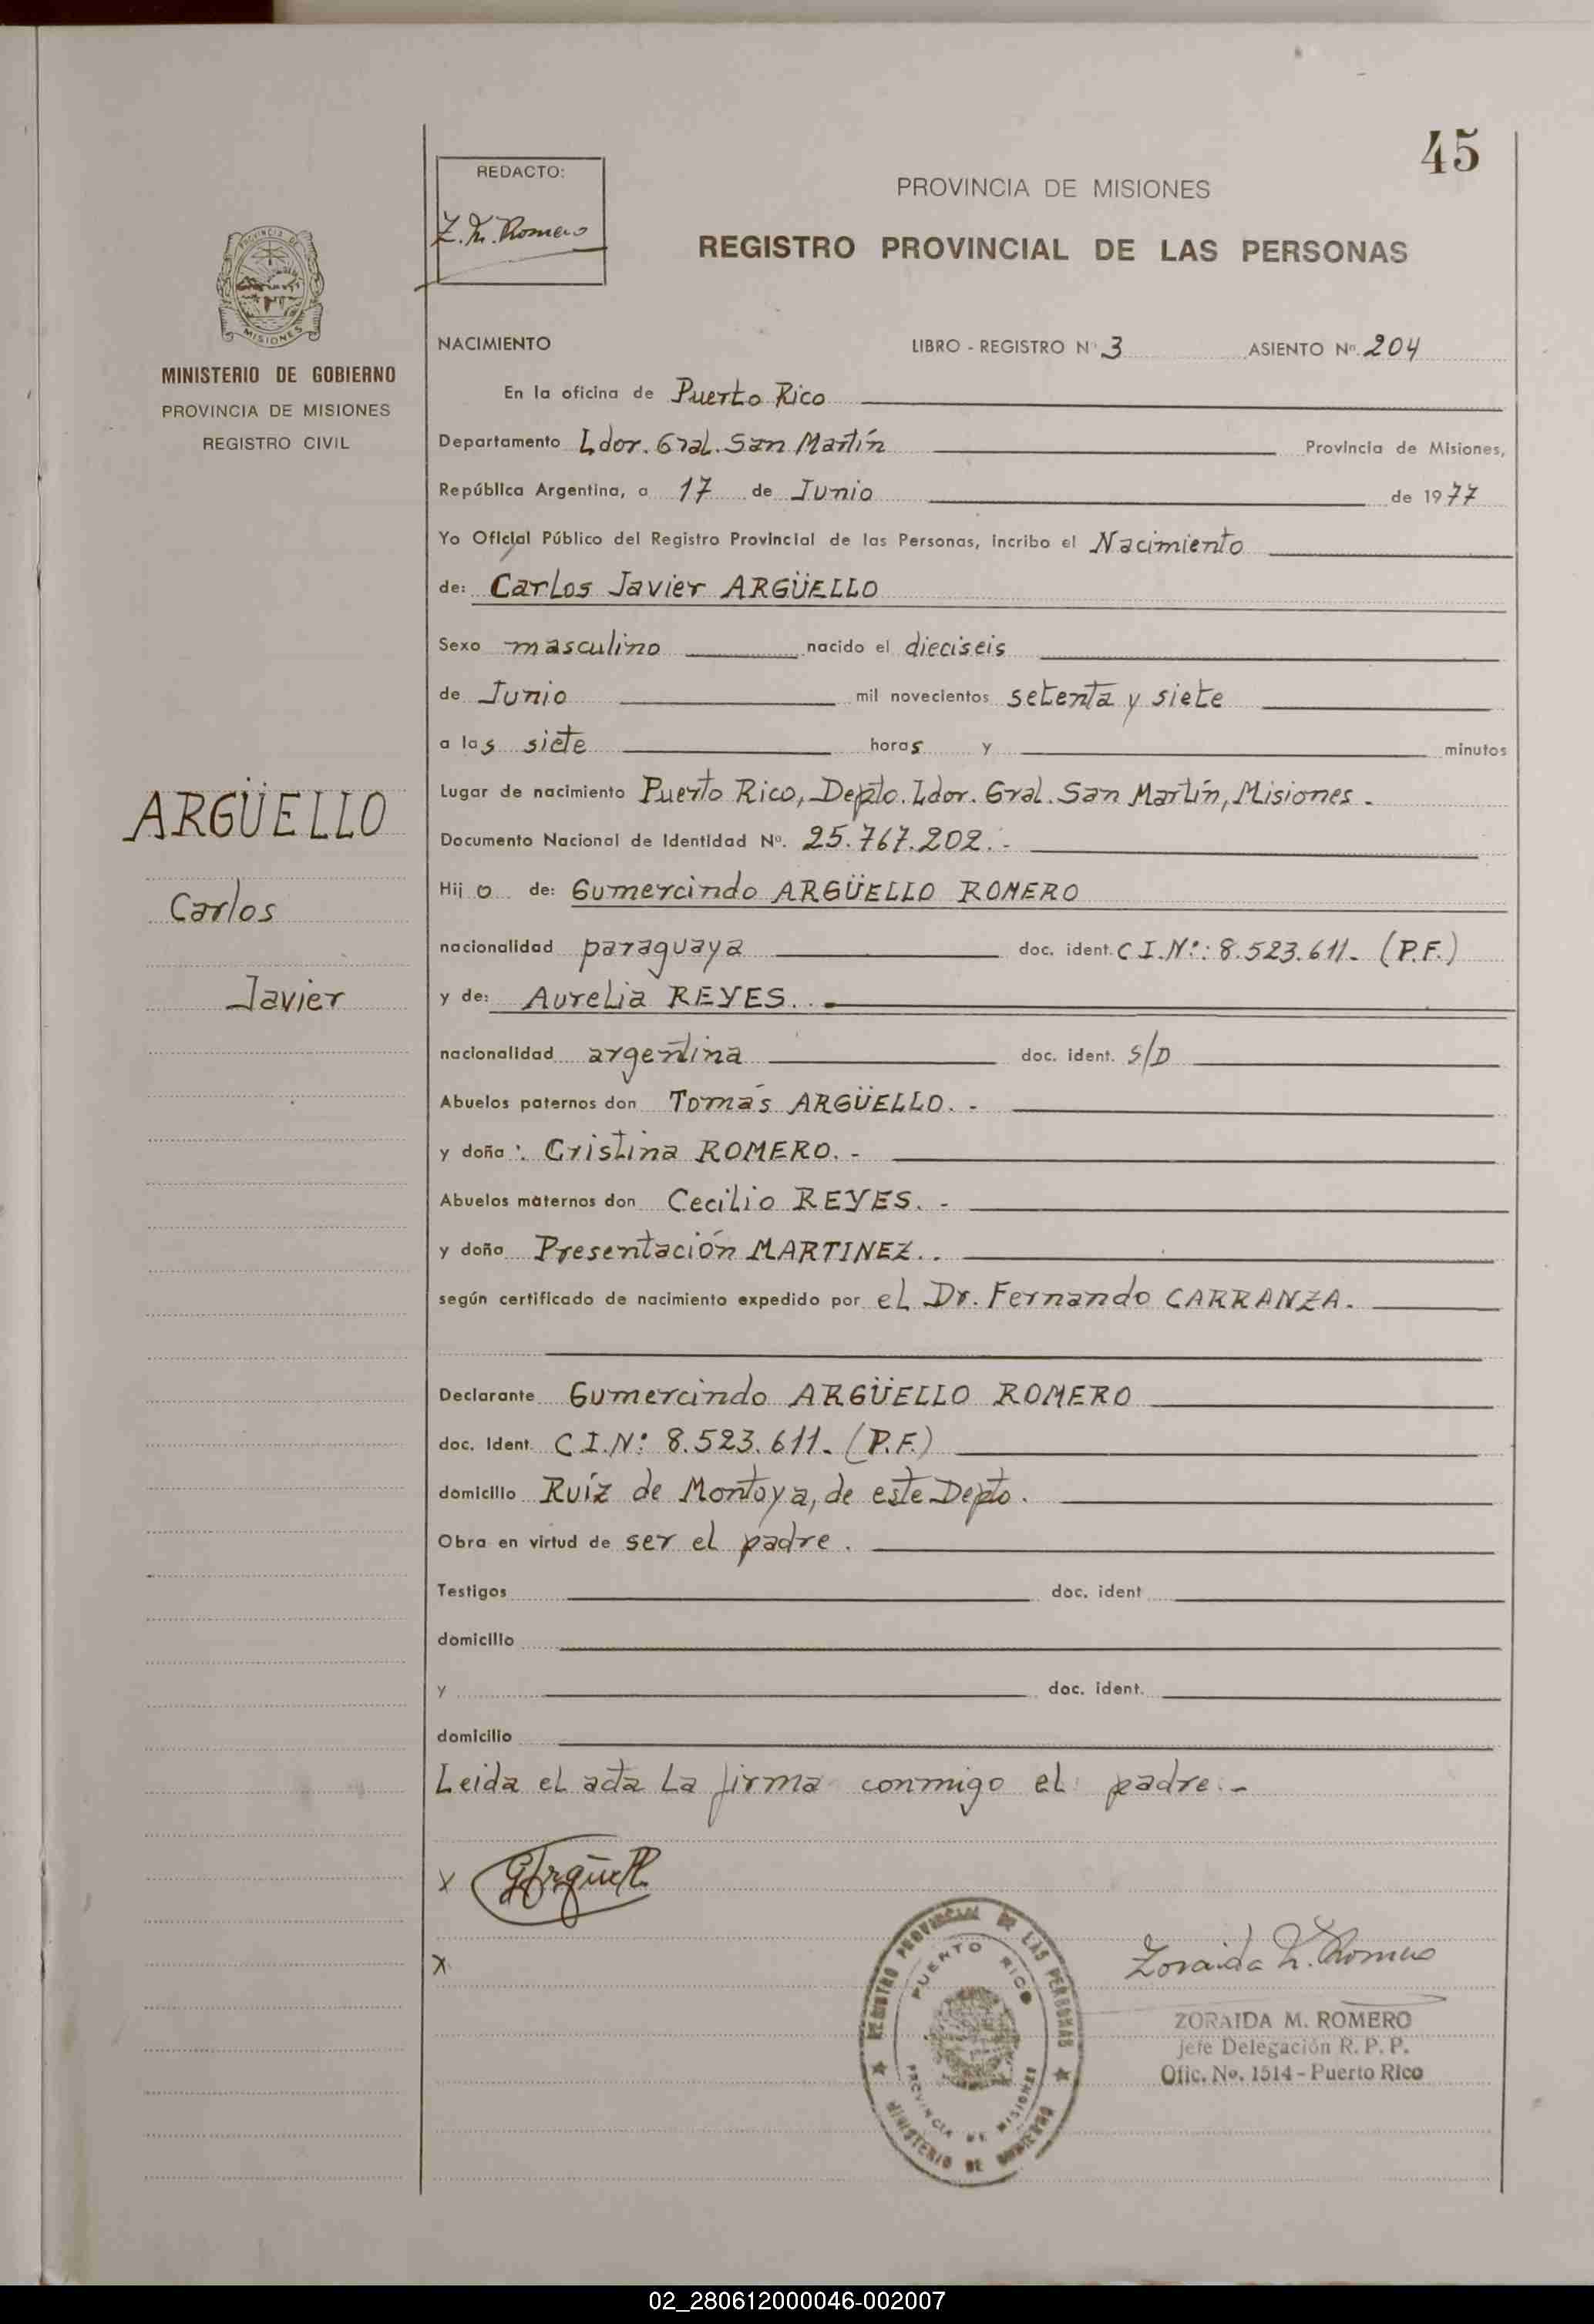 45
REDACTO:
Z. M. Romero
PROVINCIA DE MISIONES
REGISTRO PROVINCIAL DE LAS PERSONAS
PROVINCIA DE
MISIONES
MINISTERIO DE GOBIERNO
PROVINCIA DE MISIONES
REGISTRO CIVIL
ARGÜELLO
Carlos
Javier
NACIMIENTO LIBRO - REGISTRO Nº 3 ASIENTO Nº. 204
En la oficina de Puerto Rico
Departamento Ldor. Gral. San Martín Provincia de Misiones,
República Argentina, a 17 de Junio de 1977
Yo Oficial Público del Registro Provincial de las Personas, incribo el Nacimiento
de: Carlos Javier ARGÜELLO
Sexo masculino nacido el dieciseis
de Junio mil novecientos setenta y siete
a las siete horas y minutos
Lugar de nacimiento Puerto Rico, Depto. Ldor. Gral. San Martín, Misiones.-
Documento Nacional de Identidad Nº. 25.767.202.-
Hijo de: Gumercindo ARGÜELLO ROMERO
nacionalidad paraguaya doc. ident. C I.Nº: 8.523.611.- (P.F.)
y de: Aurelia REYES..
nacionalidad argentina doc. ident. S/D
Abuelos paternos don Tomás ARGÜELLO.-
y doña: Cristina ROMERO.-
Abuelos maternos don Cecilio REYES.-
y doña Presentación MARTINEZ..
según certificado de nacimiento expedido por el Dr. Fernando CARRANZA.
Declarante Gumercindo ARGÜELLO ROMERO
doc. Ident. C I.Nº 8.523.611.- (P.F.)
domicilio Ruíz de Montoya, de este Depto.
Obra en virtud de ser el padre.
Testigos doc. ident
domicilio
y doc. ident.
domicilio
Leida el acta La firma conmigo el padre.-
X GArgüell
X
REGISTRO PROVINCIAL DE LAS PERSONAS
PUERTO RICO
PROVINCIA DE MISIONES
MINISTERIO DE GOBIERNO
Zoraida M. Romero
ZORAIDA M. ROMERO
Jefe Delegación R. P. P.
Ofic. No. 1514 - Puerto Rico
02_280612000046-002007